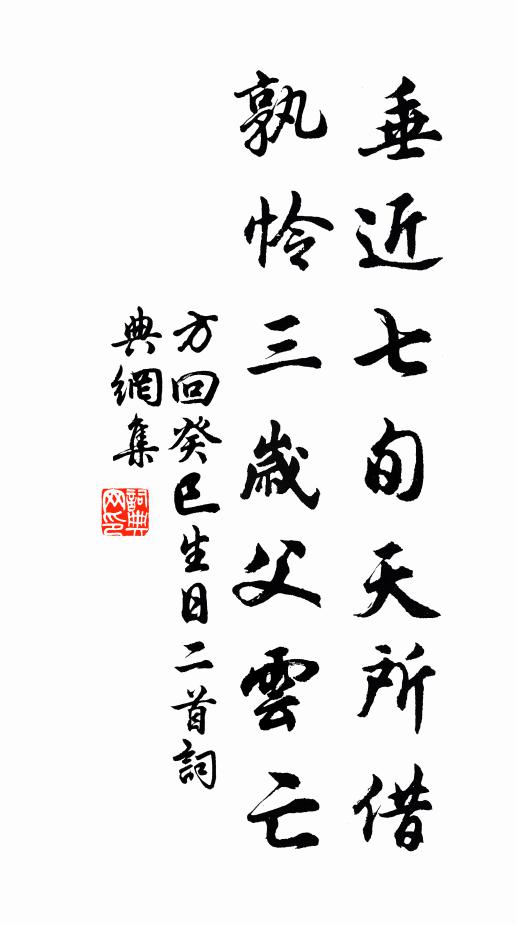 垂近七旬天所借
孰怜三歲父雲亡
方回癸巳生日二首詞
典網集
詞典网印